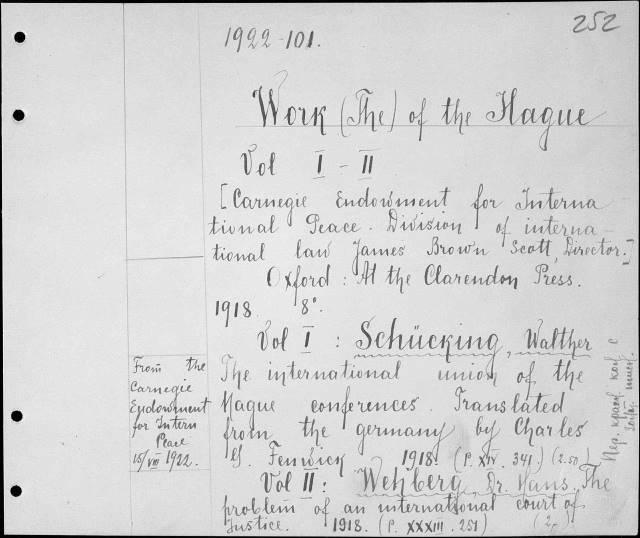 252
1922-101.
Work (The) of the Hague
Vol I - II
[Carnegie Endowment for Interna
tional Peace. Division of interna-
tional law James Brown Scott, Director.]
Oxford: At the Clarendon Press.
1918. 8°.
Vol I : Schücking, Walther
The international union of the
Hague conferences. Translated
from the germany by Charles
G. Fenwick 1918. (P. XIV. 341.) (2.50)
Vol II: Wehberg, Dr. Hans, The
problem of an international court of
Justice. 1918. (P. XXXIII. 251)
From the
Carnegie
Endowment
for Intern
Peace
15/VIII 1922.